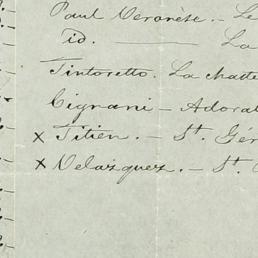 Paul Veronèse. — Le
id. ——— La
Tintoretto. La chatte
Cignani — Adorat
x Titien. — St. Gér
x Velazquez. — St.